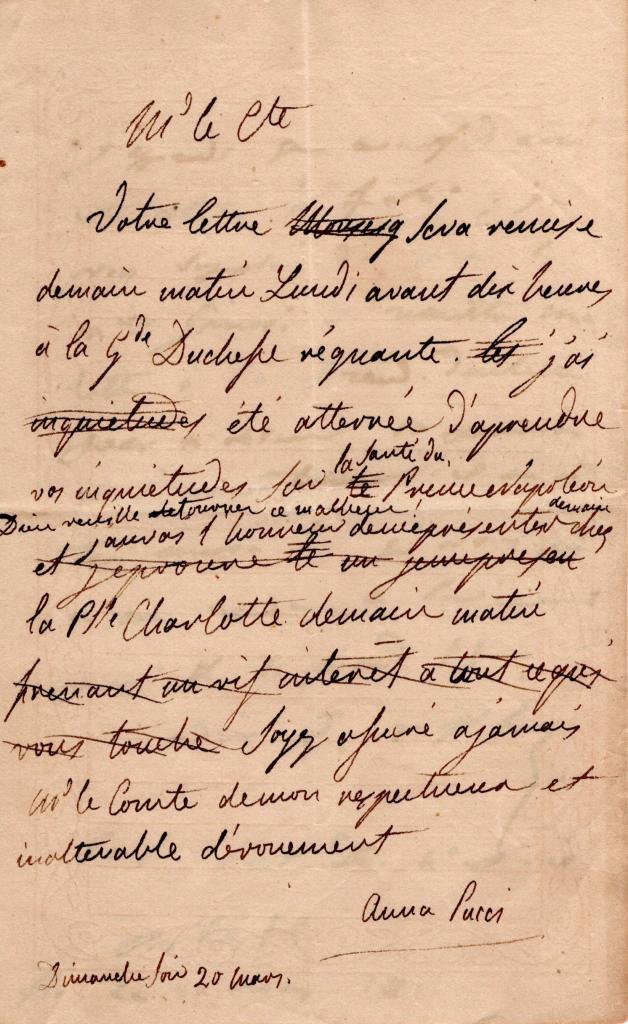 Mr le Cte
Votre lettre sera remise
demain matin Lundi avant dix heures
à la Gde Duchesse régnante. les j'ai
inquietudes été atterrée d'aprendre
la santé du
vos inquietudes sur le Prince Napoléon
Dieu veuille detourner ce malheur! demain
j'aurai l'honneur de me présenter chez
et j'eprouve le un
la Psse Charlotte demain matin
prenant un vif interêt à tout ce qui
vous touche Soyez assuré ajamais
Mr le Comte de mon respectueux et
inalterable dévouement
Anna Pucci
Dimanche soir 20 Mars.